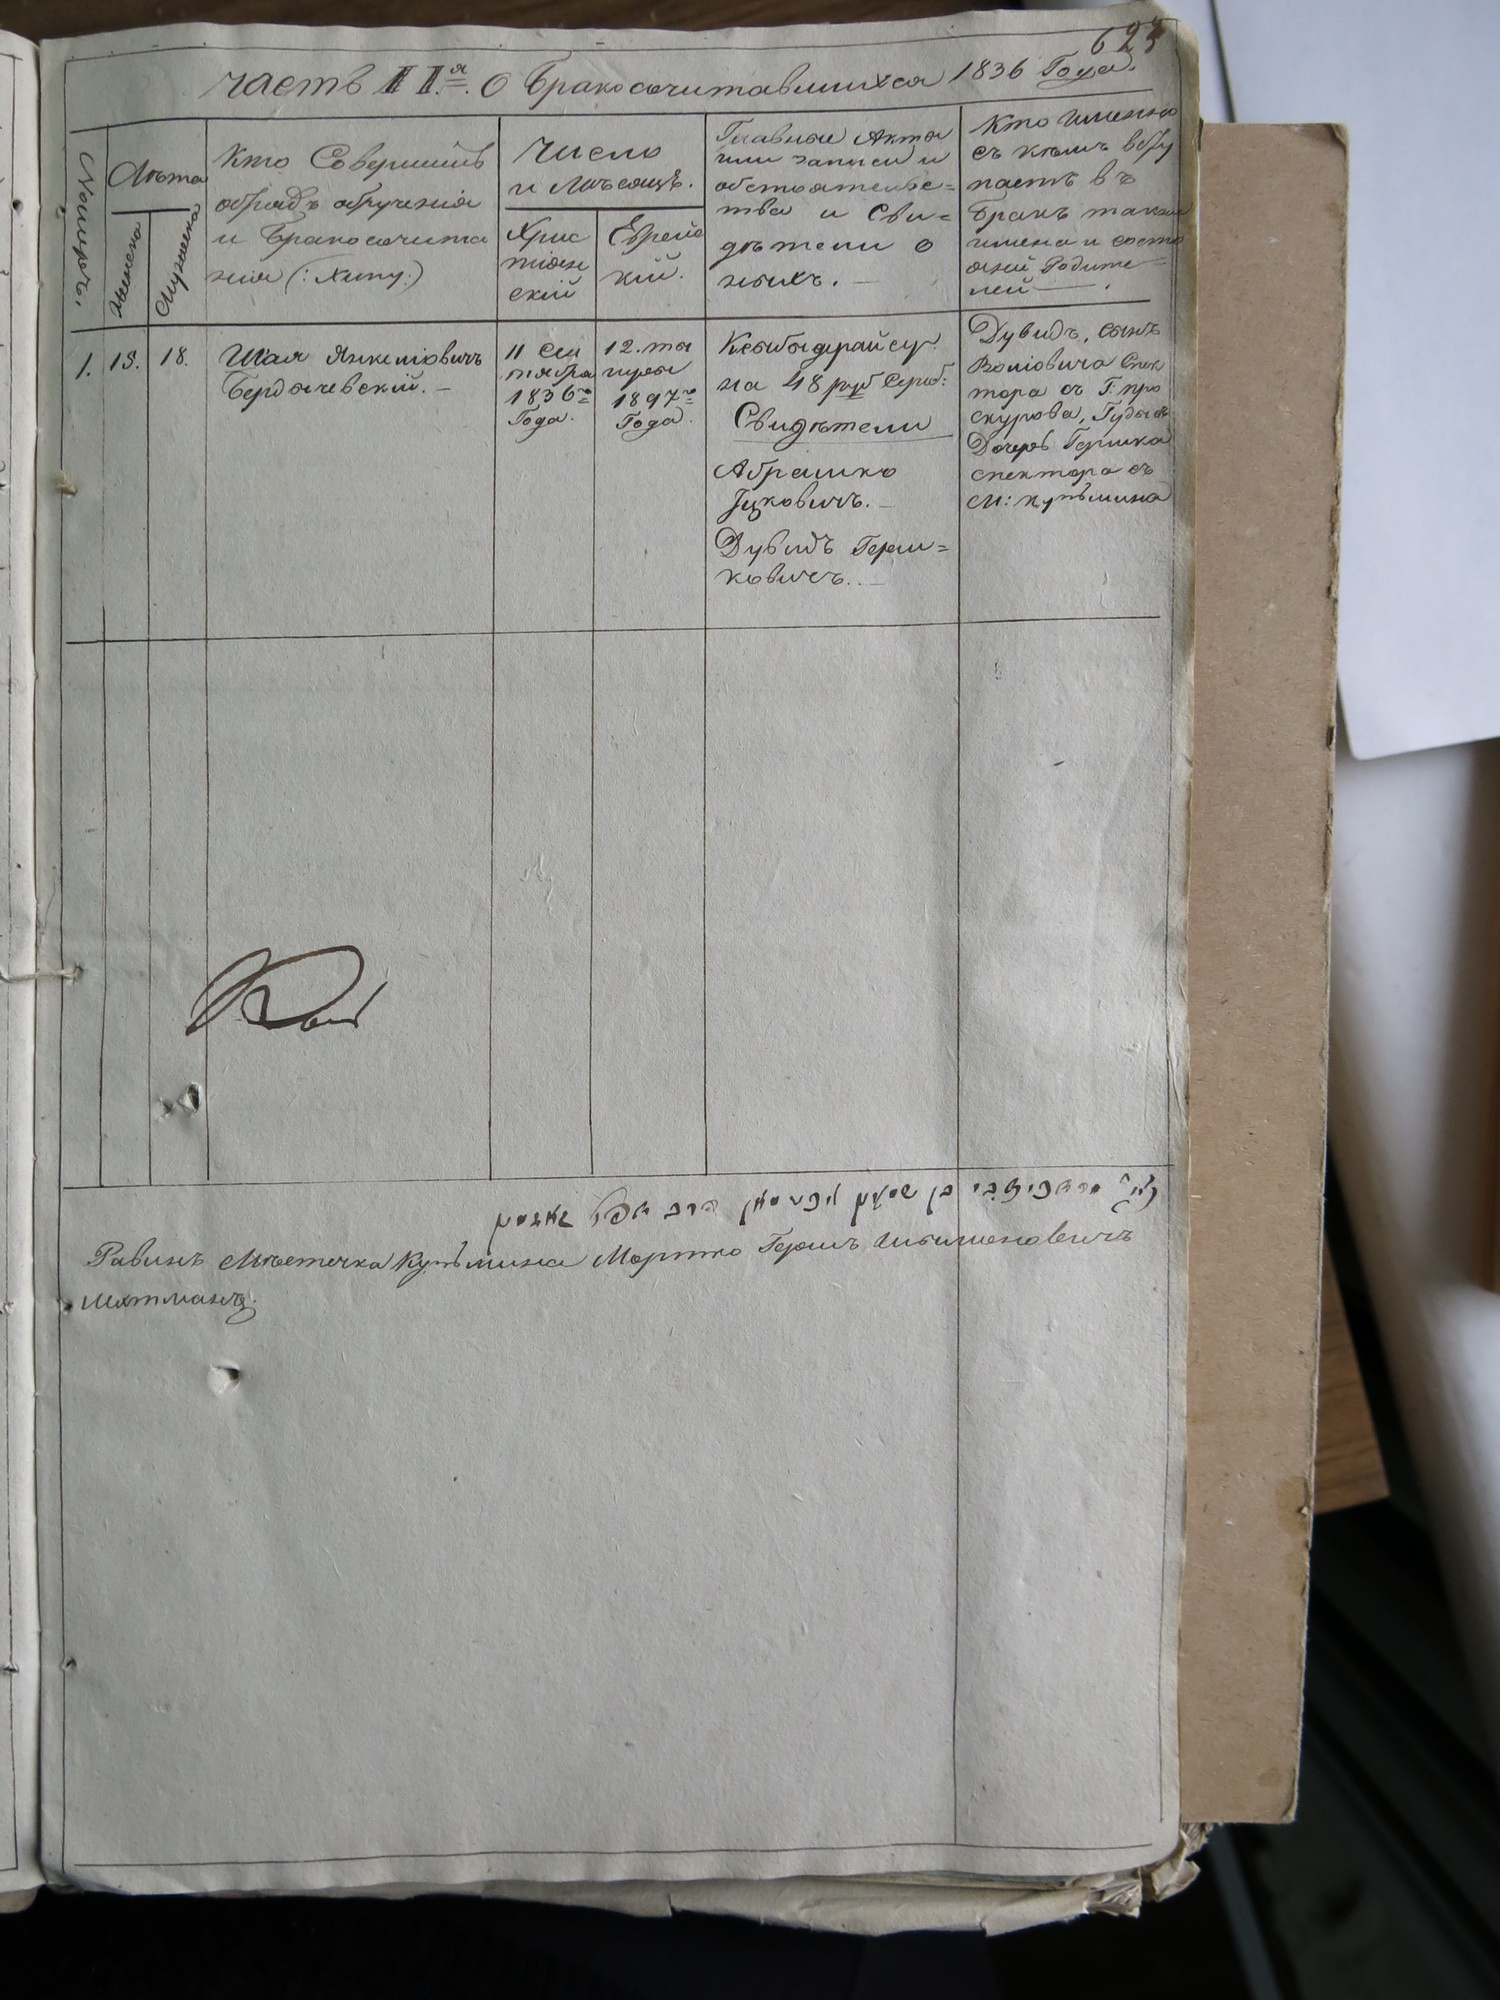 623
Часть II.я О Бракосочитавшихся 1836 Года.
Номеръ.
Лѣта
Женска
Мужеска
Кто Совершилъ
обрядъ обрученія
и Бракосочита
нія (: Хипу :)
Число
и Мѣсяцъ.
Хрис
тіян
скій
Еврейс
кій.
Главные Акты
или записи и
обстоятельс=
тва и Сви=
дѣтели о
ныхъ. —
Кто Именно
съ кѣмъ всту
паетъ въ
Бракъ також
имена и состо
яній Родите
лей — .
1.
15.
18.
Шая Янкеліовичъ
Бердичевскій. —
11 Сен
тября
1836го
Года.
12. ти
шры
1897го
Года.
на 48 руб Сереб:
Свидѣтели
Абрашко
Іцковичъ. —
Дувидъ Герш=
ковичъ. . —
Дувидъ, сынъ
Воліовича Спек
тора съ Г: про
скурова,
Дочерь Гершка
спектора съ
М: кузьмина
בן
הרב
Равинъ Мѣстечка Кузьмина Мортко Гершъ Шліоменовичъ